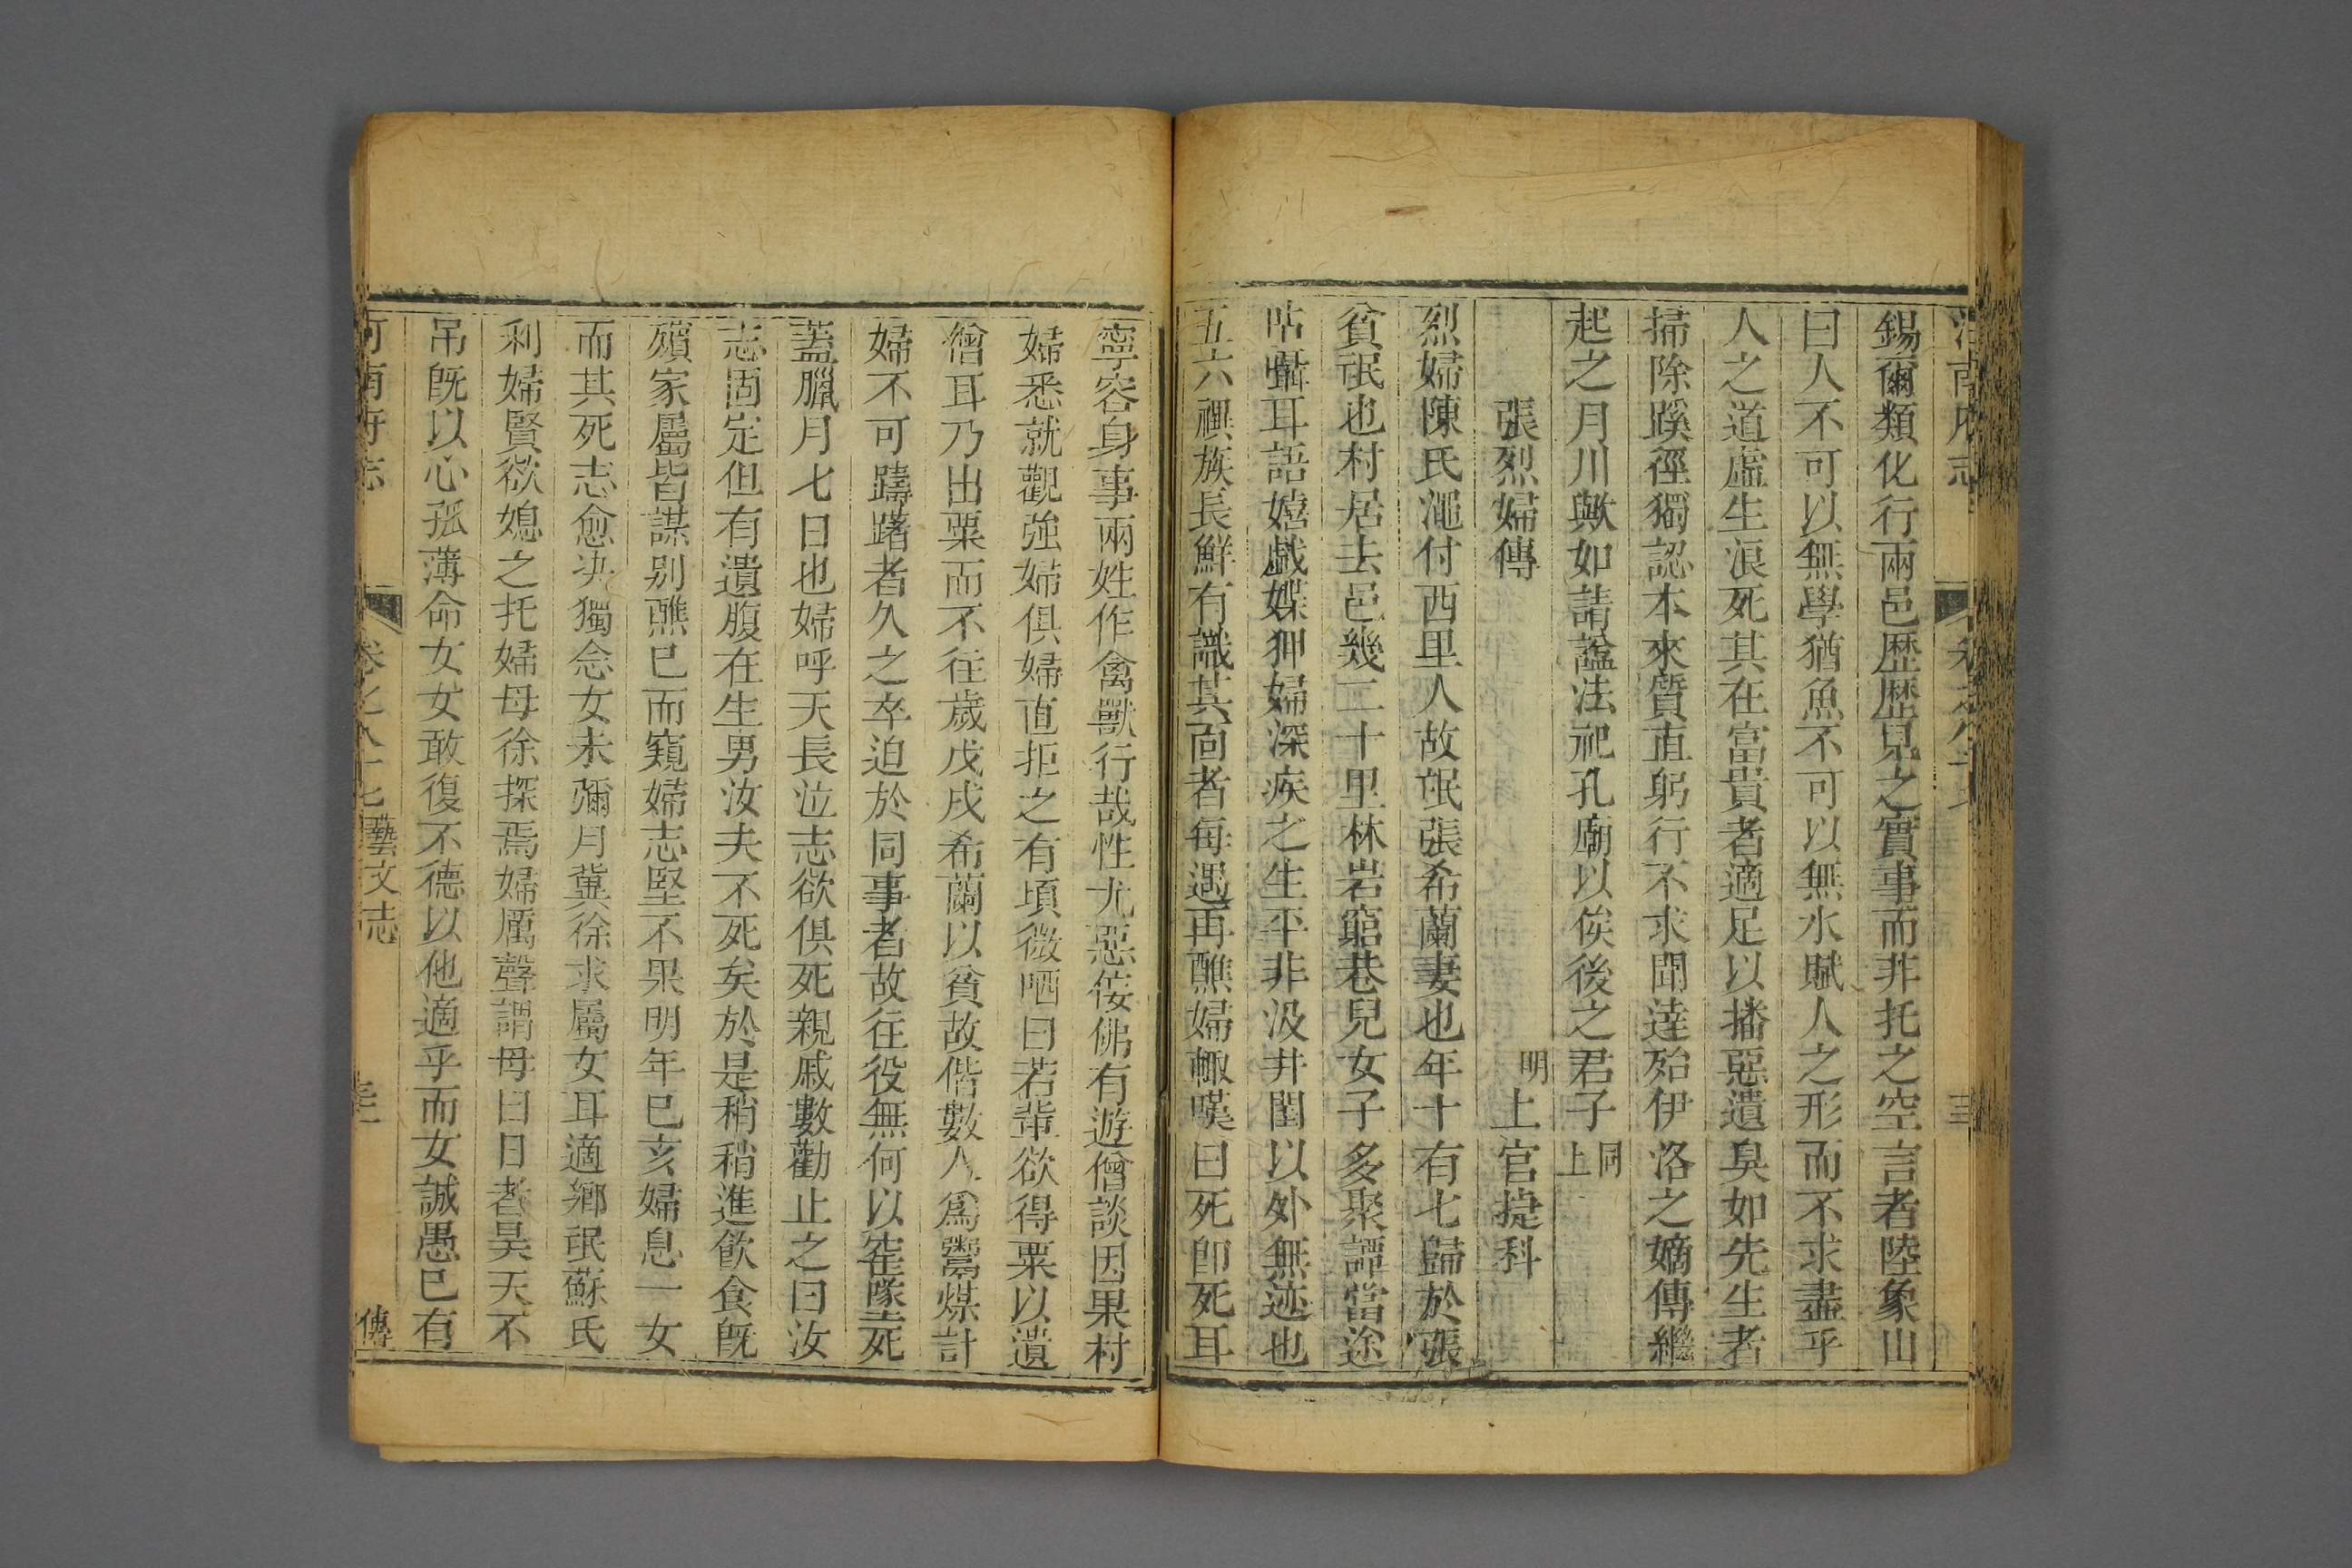 錫爾類化行兩邑歴歴見之實事而非托之空言者陸象山
曰人不可以無學猶魚不可以無水賦人之形而不求盡乎
人之道虛生浪死其在富貴者適足以播惡遺臭如先生者
掃除蹊徑獨認本來質直躬行不求聞達殆伊洛之嫡傳繼
起之月川歟如請謚法祀孔廟以俟後之君子同上
張烈婦傳 明上官捷科
烈婦陳氏澠付西里人故氓張希蘭妻也年十有七歸於張
貧氓也村居去邑幾二十里林岩窮巷兒女子多聚譚當途
呫囁耳語嬉戯媟狎婦深疾之生平非汲井閨以外無迹也
五六禩族長鮮有識其面者每遇再醮婦輙嘆曰死卽死耳
寧容身事兩姓作禽獸行哉性尤惡佞佛有遊僧談因果村
婦悉就觀強婦俱婦直拒之有頃微哂曰若輩欲得粟以遺
僧耳乃出粟而不往歲戊戌希蘭以貧故偕數人爲鬻煤計
婦不可躊躇者久之卒迫於同事者故往役無何以窑墜死
蓋臘月七日也婦呼天長泣志欲俱死親戚數勸止之曰汝
志固定但有遺腹在生男汝夫不死矣於是稍稍進飲食旣
殯家屬皆謀别醮巳而窺婦志堅不果明年巳亥婦息一女
而其死志愈决獨念女未彌月冀徐求屬女耳適鄉氓蘇氏
利婦賢欲媳之托婦母徐探焉婦厲聲謂母曰日者昊天不
吊旣以心孤薄命女女敢復不德以他適乎而女誠愚巳有
河南府志 卷之八十七藝文志 傳